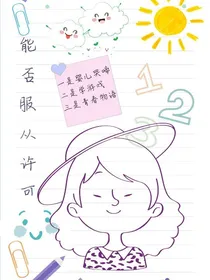 能否服从许可
一是婴儿哭啼
二是学游戏
三是青春物语
1
2
3